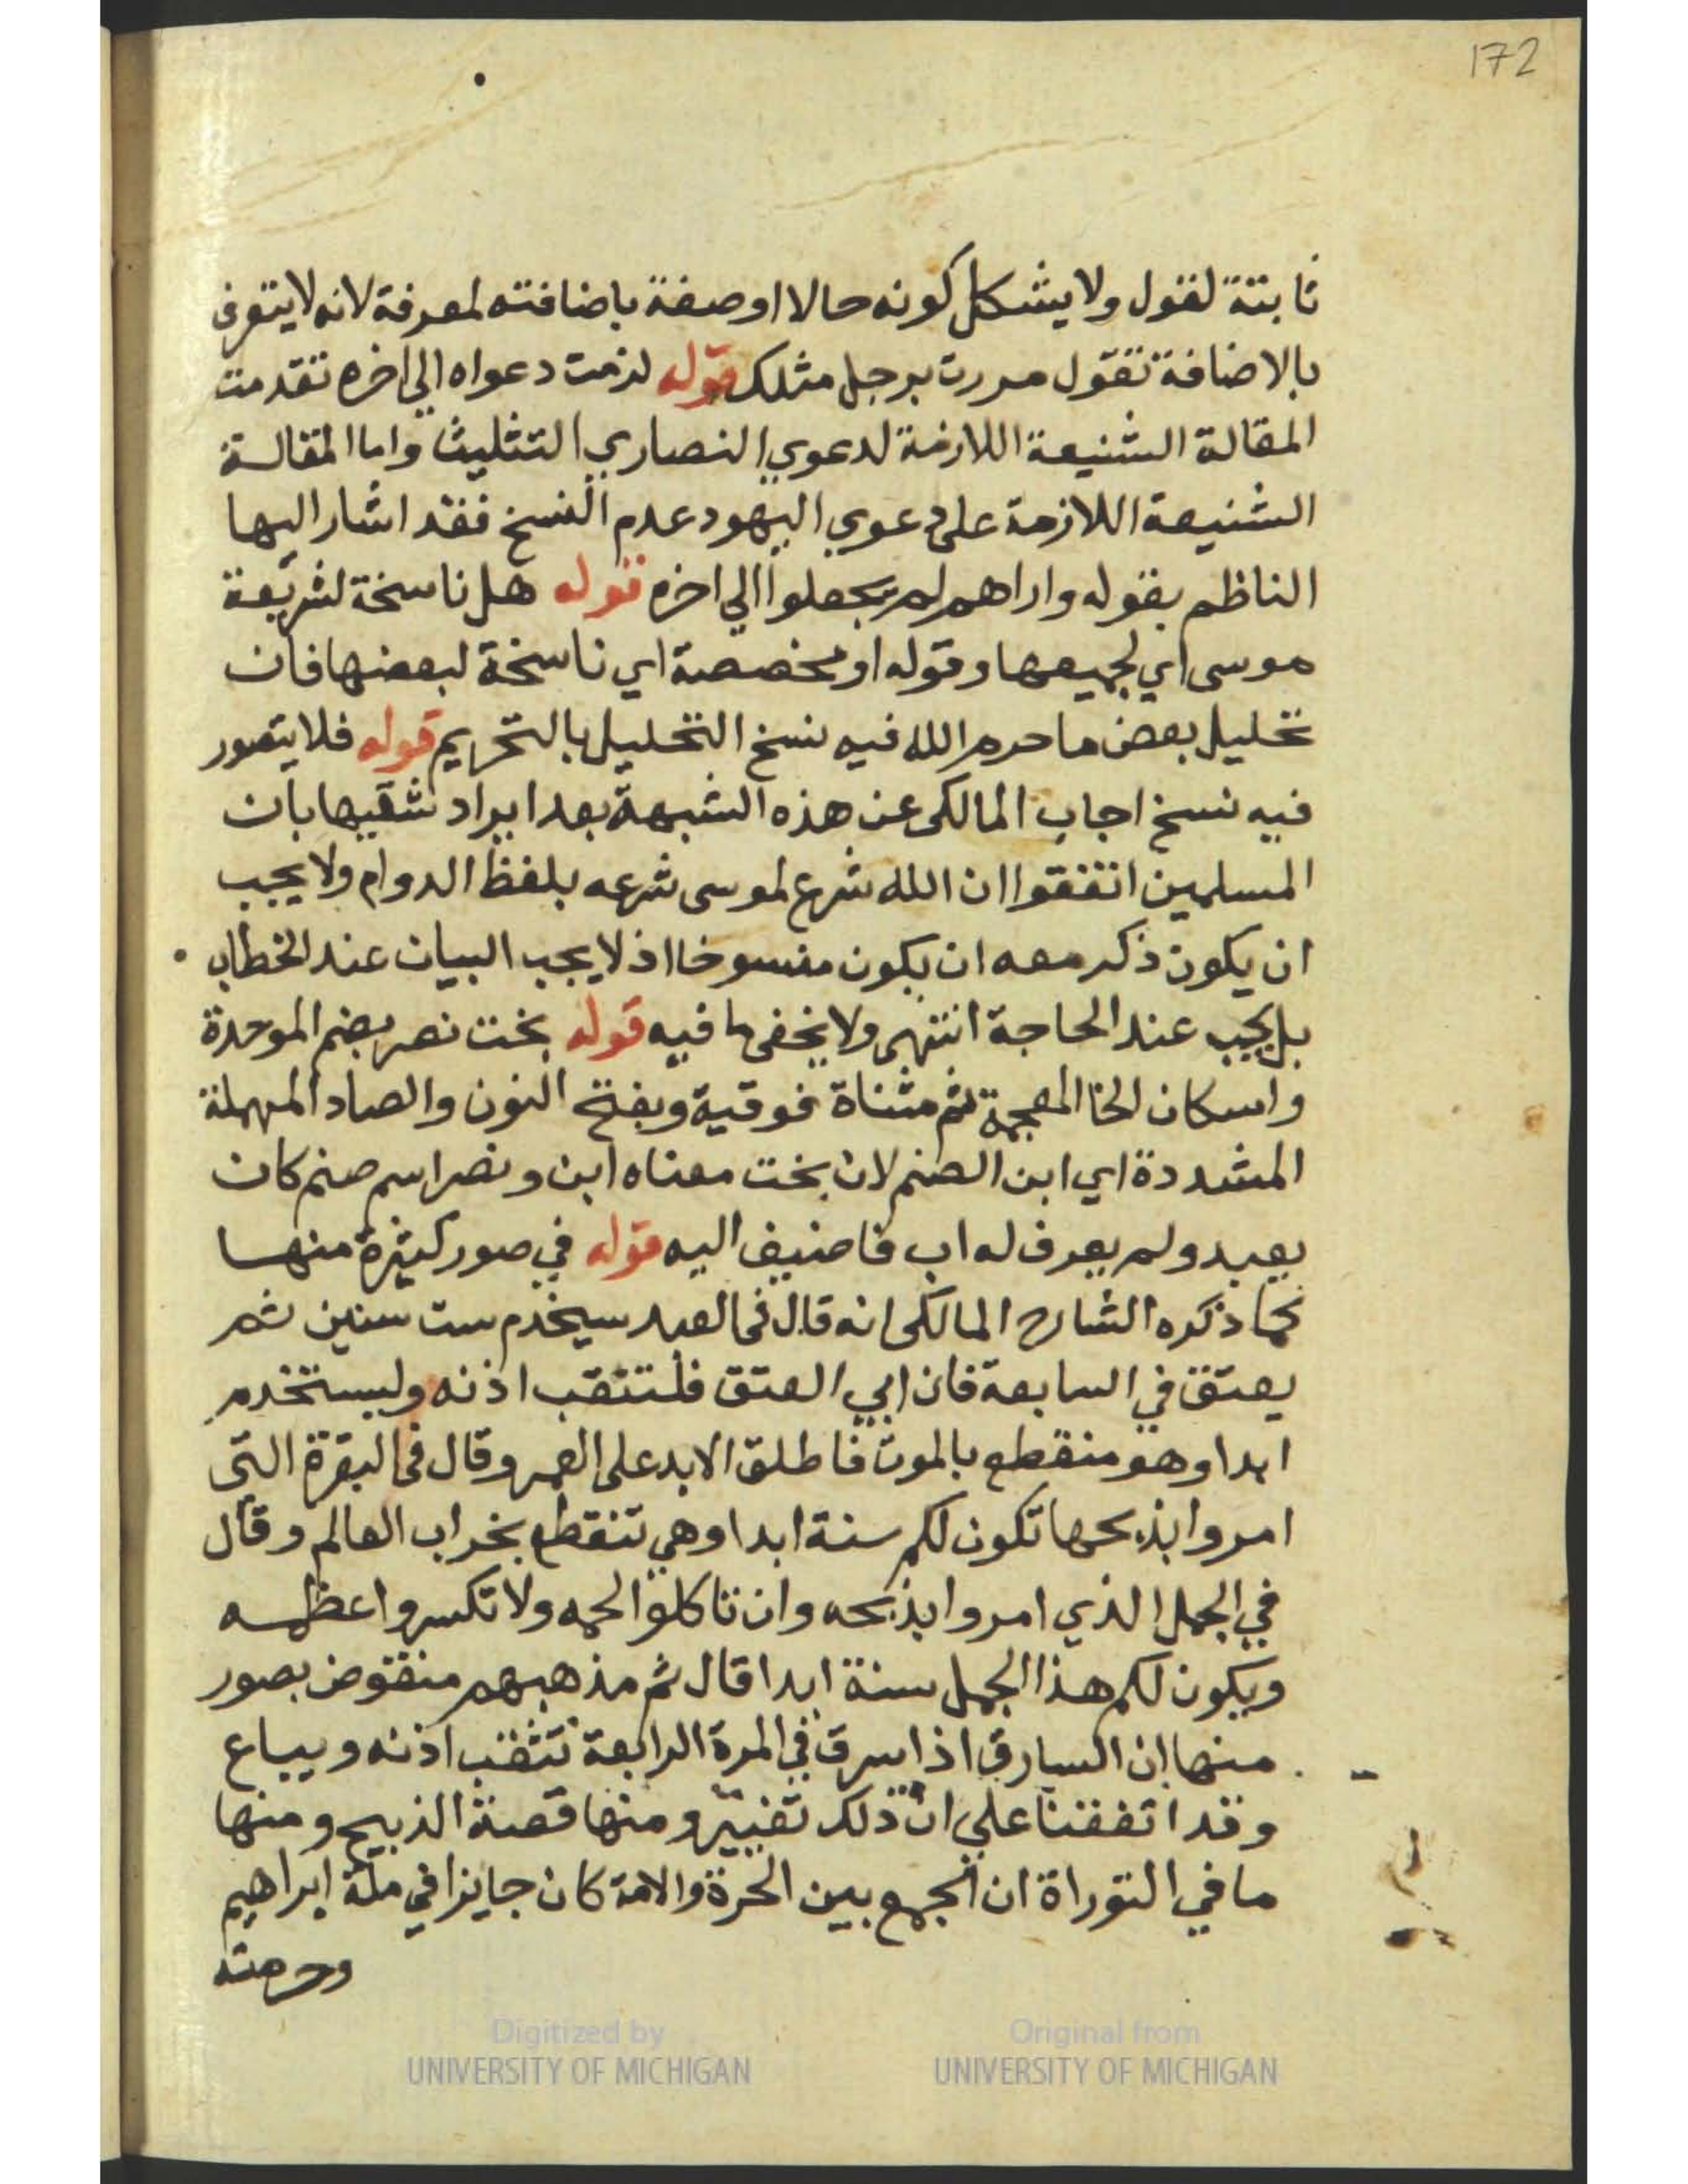 172
ثابتة لقول ولا يشكل كونه حالا او صفة باضافته لمعرفة لانه لا يتعرف
بالاضافة تقول مررت برجل مثلك قوله لزمت دعواه الي اخره تقدمت
المقالة الشنيعة اللازمة لدعوي النصاري التثليث واما المقالة
الشنيعة اللازمة على دعوي اليهود عدم النسخ فقد اشار اليها
الناظم بقوله واراهم لم يجعلوا الي اخره قوله هل ناسخة لشريعة
موسى اي لجميعها وقوله او مخصصة اي ناسخة لبعضها فان
تحليل بعض ما حرم الله فيه نسخ التحليل بالتحريم قوله فلا يتصور
فيه نسخ اجاب المالكى عن هذه الشبهة بعد ايراد شقيها بان
المسلمين اتفقوا ان الله شرع لموسى شرعه بلفظ الدوام ولا يجب
ان يكون ذكر معه ان يكون منسوخا اذ لا يجب البيان عند الخطاب
بل يجب عند الحاجة انتهى ولا يخفى ما فيه قوله بخت نصر بضم الموحدة
واسكان الخا المعجمة ثم مثناة فوقية وبفتح النون والصاد المهملة
المشددة اي ابن الصنم لان بخت معناه ابن ونصر اسم صنم كان
يعبد ولم يعرف له اب فاضيف اليه قوله في صور كثيرة منها
كما ذكره الشارح المالكى انه قال فى العبد سيخدم ست سنين ثم
يعتق في السابعة فان ابي العتق فلتثقب اذنه وليستخدم
ابدا وهو منقطع بالموت فاطلق الابد على العمر وقال فى البقرة التى
امروا بذبحها تكون لكم سنة ابدا وهي تنقطع بخراب العالم وقال
في الجمل الذي امروا بذبحه وان تاكلوا لحمه ولا تكسروا عظمه
ويكون لكم هذا الجمل سنة ابدا قال ثم مذهبهم منقوض بصور
منها ان السارق اذا سرق في المرة الرابعة تثقب اذنه ويباع
وقد اتفقنا علي ان ذلك تغيير ومنها قصة الذبيح ومنها
ما في التوراة ان الجمع بين الحرة والامة كان جايزا في ملة ابراهيم
وحرمته
Digitized by Original from
UNIVERSITY OF MICHIGAN UNIVERSITY OF MICHIGAN